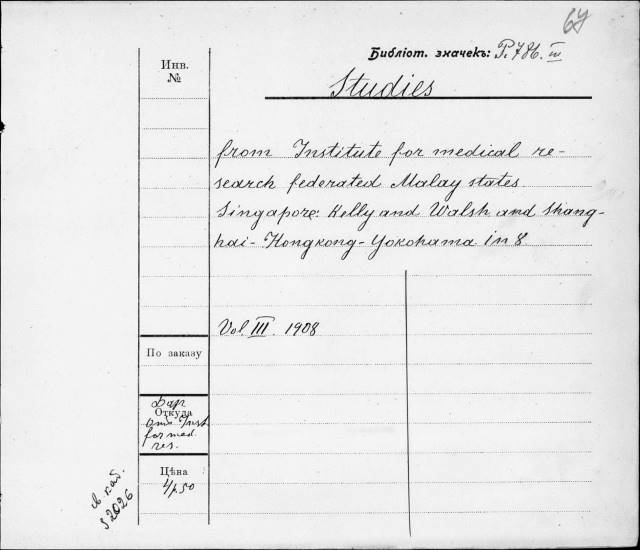 67
Библіот. значекъ: P. 786. IV
Инв.
№
Studies
from Institute for medical re-
search federated Malay states.
Singapore: Kelly and Walsh and Shang-
hai - Hongkong - Yokohama in 8
Vol. III. 1908
По заказу
Дар
Откуда
Inst
for med.
res.
Цѣна
4р.50
каб.
2026